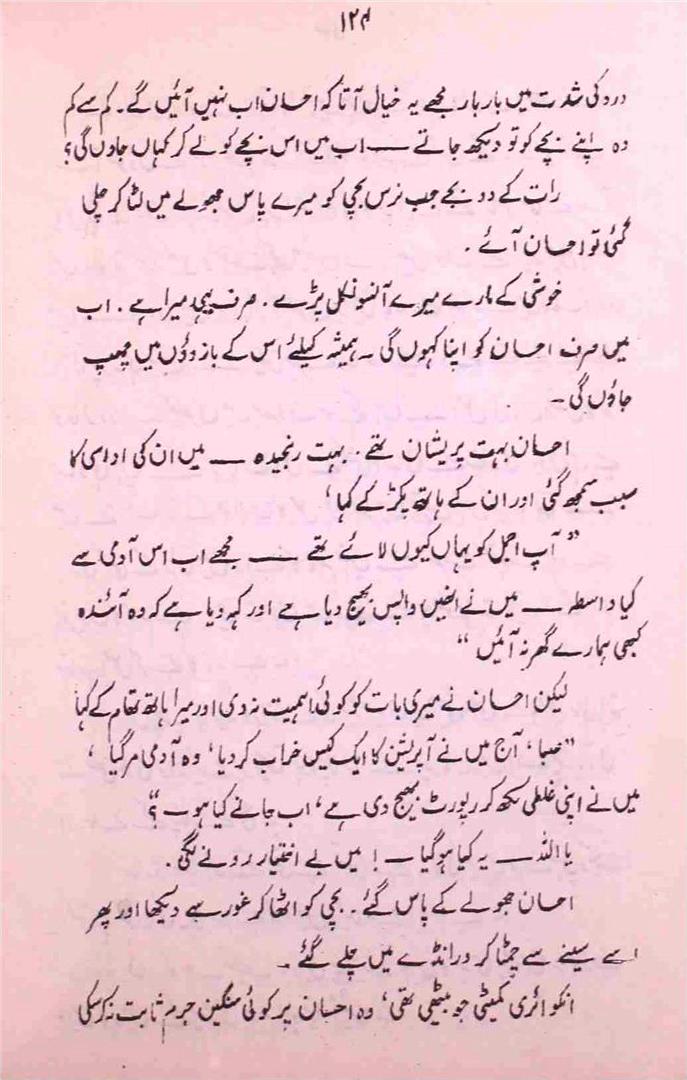 ۱۲۴
درد کی شدت میں بار بار مجھے یہ خیال آتا کہ احسان اب نہیں آئیں گے۔ کم سے کم
وہ اپنے بچے کو تو دیکھ جاتے ـــــ اب میں اس بچے کو لے کر کہاں جاوں گی؟
رات کے دو بجے جب نرس بچی کو میرے پاس جھولے میں لٹا کر چلی
گئی تو احسان آئے۔
خوشی کے مارے میرے آنسو نکل پڑے۔ صرف یہی میرا ہے۔ اب
میں صرف احسان کو اپنا کہوں گی۔ ہمیشہ کیلئے اس کے بازوؤں میں چھپ
جاؤں گی۔
احسان بہت پریشان تھے۔ بہت رنجیدہ ـــــ میں ان کی اداسی کا
سبب سمجھ گئی اور ان کے ہاتھ پکڑ کے کہا،
”آپ اجمل کو یہاں کیوں لائے تھے ـــــ مجھے اب اس آدمی سے
کیا واسطہ ـــــ میں نے انھیں واپس بھیج دیا ہے اور کہہ دیا ہے کہ وہ آئندہ
کبھی ہمارے گھر نہ آئیں“
لیکن احسان نے میری بات کو کوئی اہمیت نہ دی اور میرا ہاتھ تھام کے کہا
”صبا، آج میں نے آپریشن کا ایک کیس خراب کر دیا، وہ آدمی مر گیا،
میں نے اپنی غلطی لکھ کر رپورٹ بھیج دی ہے، اب جانے کیا ہو ــ؟“
یا اللہ ـــــ یہ کیا ہو گیا ــ! میں بے اختیار رونے لگی۔
احسان جھولے کے پاس گئے۔ بچی کو اٹھا کر غور سے دیکھا اور پھر
اسے سینے سے چمٹا کر ورانڈے میں چلے گئے۔
انکوائری کمیٹی جو بیٹھی تھی، وہ احسان پر کوئی سنگین جرم ثابت نہ کر سکی